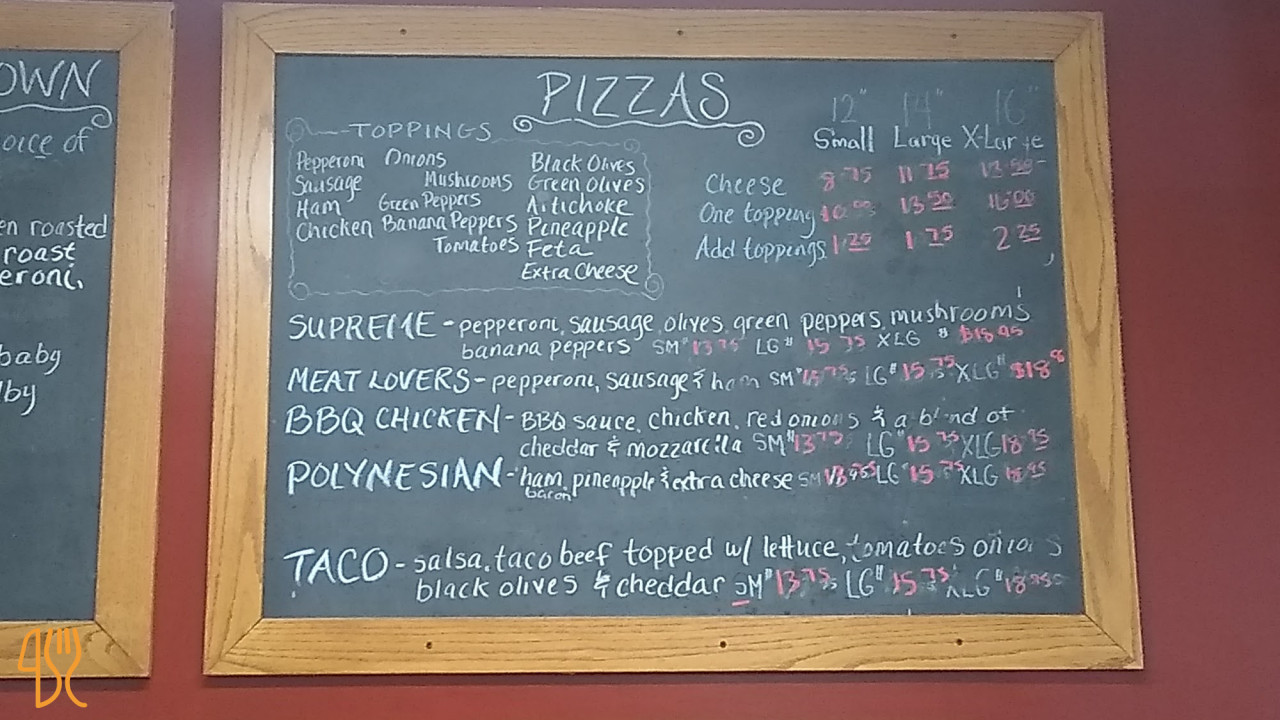 OWN
oice of
en roasted
roast
eroni,
baby
lby
PIZZAS
12" 14" 16"
Small Large X-Large
TOPPINGS
Pepperoni Onions Black Olives
Sausage Mushrooms Green Olives
Ham Green Peppers Artichoke
Chicken Banana Peppers Pineapple
Tomatoes Feta
Extra Cheese
Cheese 8.75 11.75
One topping 10.00 13.50 16.00
Add toppings 1.25 1.75 2.25
SUPREME - pepperoni, sausage, olives, green peppers, mushrooms
banana peppers SM" 13.75 LG" 15.75 XLG " $18.95
MEAT LOVERS - pepperoni, sausage & ham SM" LG" 15.75 XLG"
BBQ CHICKEN - BBQ sauce, chicken, red onions & a blend of
cheddar & mozzarella SM" 13.75 LG" 15.75 XLG 18.95
POLYNESIAN - ham, pineapple & extra cheese SM LG" 15.75 XLG 18.95
bacon
TACO - salsa, taco beef topped w/ lettuce, tomatoes onions
black olives & cheddar SM" 13.75 LG" 15.75 XLG" 18.95